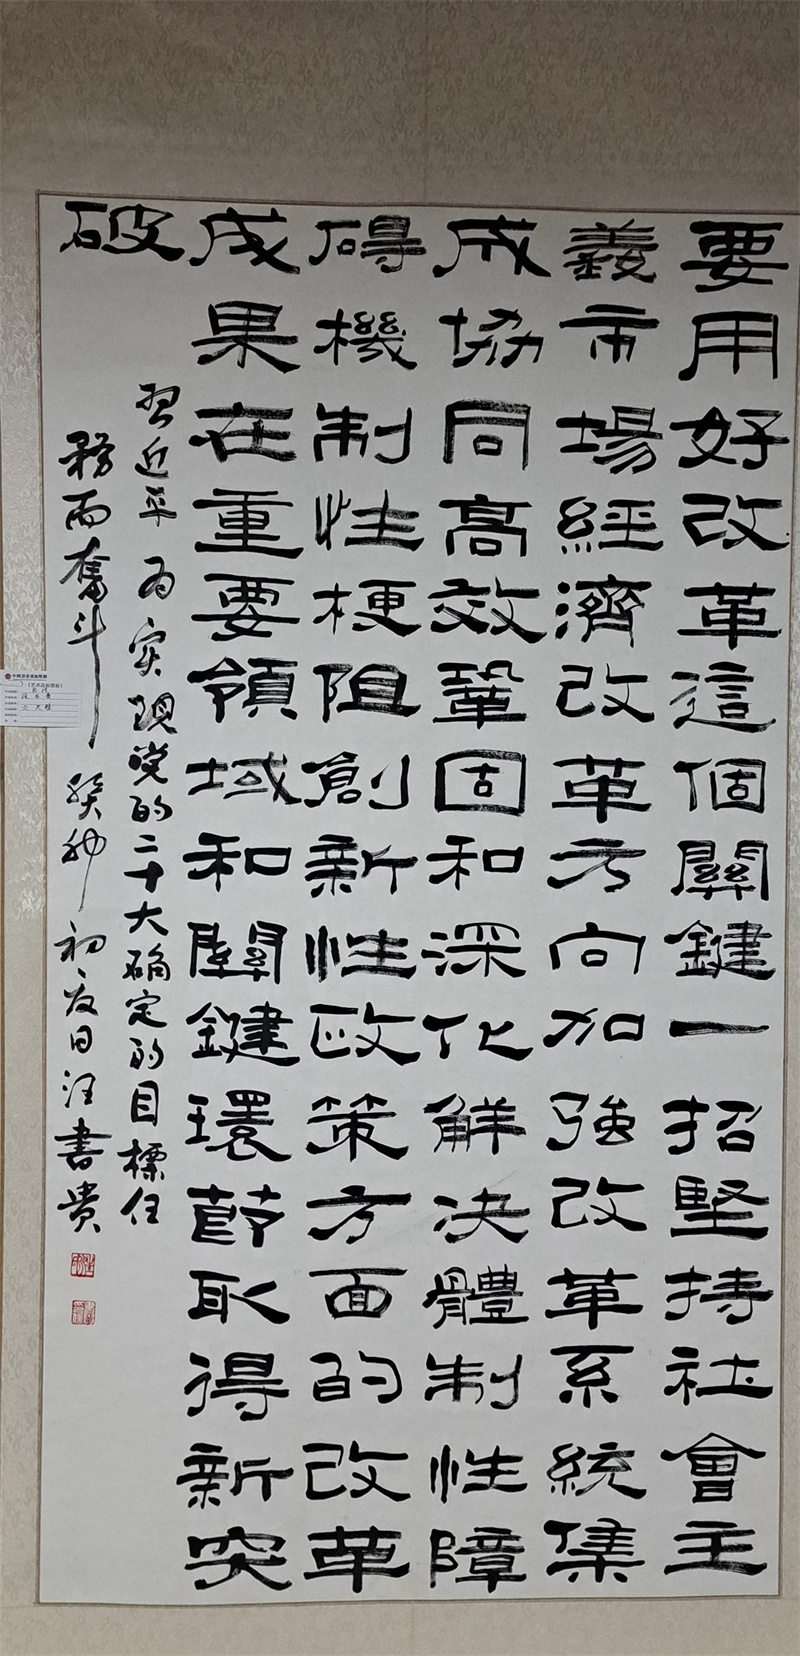 要用好改革這個關鍵一招堅持社會主
義市場經濟改革方向加強改革系統集
成協同高效鞏固和深化解決體制性障
碍機制性梗阻創新性政策方面的改革
成果在重要領域和關鍵環節取得新突
破
習近平 为实现党的二十大确定的目標任
務而奮斗 癸卯初夏日汪書贵